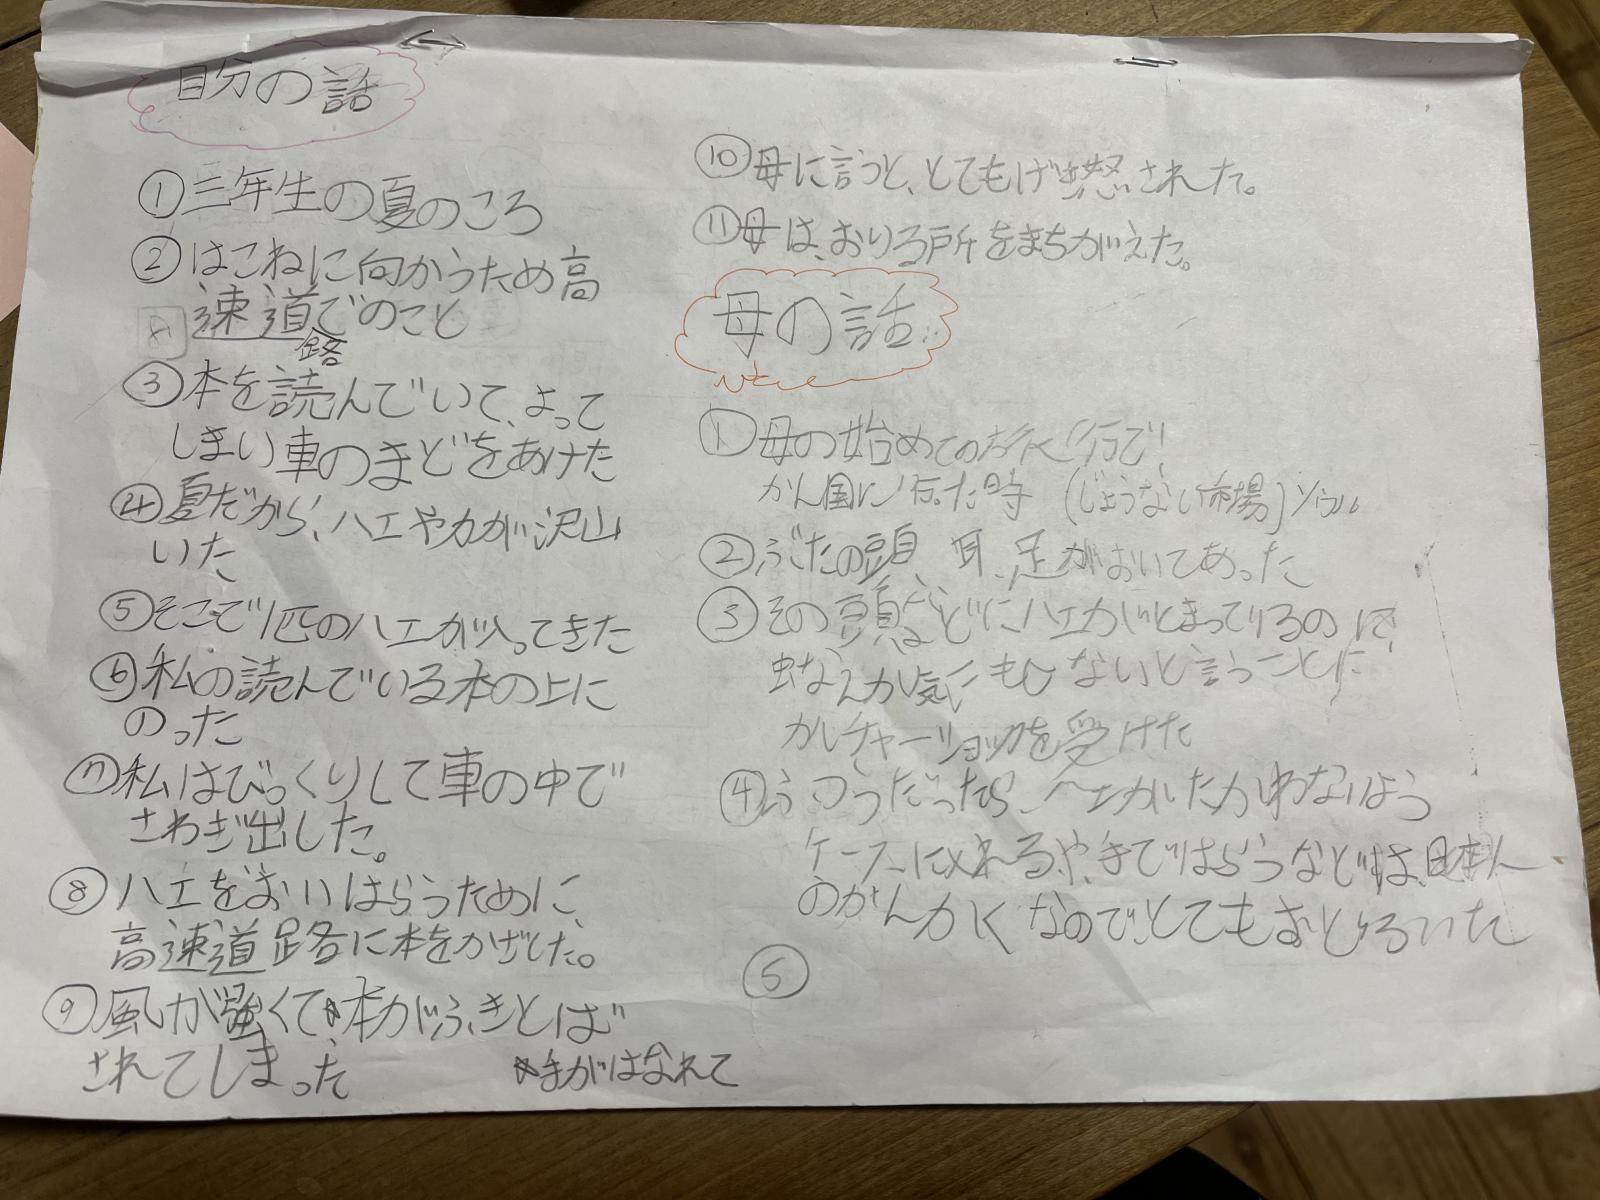 自分の話
①三年生の夏のころ
②はこねに向かうため高
速道でのこと
路
③本を読んでいて、よって
しまい車のまどをあけた
④夏だから、ハエやカが沢山
いた
⑤そこで1匹のハエが入ってきた
⑥私の読んでいる本の上に
のった
⑦私はびっくりして車の中で
さわぎ出した。
⑧ハエをおいはらうために、
高速道路に本をかざした。
⑨風が強くて☆本がふきとば
されてしまった
☆手がはなれて
⑩母に言うと、とてもげき怒された。
⑪母は、おりる所をまちがえた。
母の話
①母の始めての旅行で!
かん国に行た時 (じょうない市場)ソウル
②ぶたの頭、耳、足がおいてあった
③その頭などにハエがとまっているのに
虫なんか気にもしないと言うことに
カルチャーショックを受けた
④ふつうだったら、ハエがたからないよう
ケースに入れるや、手ではらうなどは、日本人
のかんかくなので、とてもおどろいた
⑤